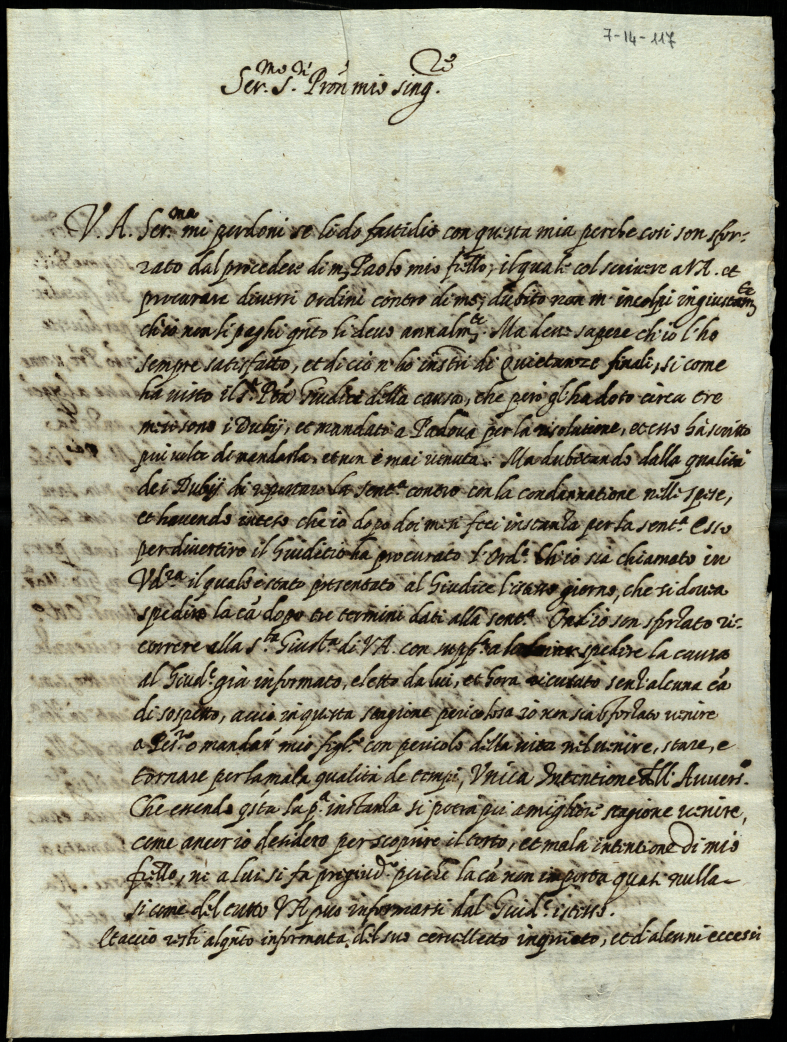 7-14-117
Ser.mo S.r Pron mio sing.re
V. A. Ser.ma mi perdoni se li do fastidio con questa mia perche cosi son sfor-
zato dal procedere di m. Paolo mio fr̃llo, il quale col scrivere a VA. et
procurare diversi ordini contro di me, dubito non m' incolpi ingiustam.te
ch'io non li paghi q̃nto li devo annalm.te Ma deve sapere ch'io l'ho
sempre satisfatto, et di ciò n' ho instri di Quietanze finali, si come
ha visto il S.r Giudice della causa, che però gl' ha dato circa tre
mesi sono i Dubij, et mandato a Padova per la risolutione, et esso ha scritto
più volte di mandarla, et non è mai venuta. Ma dubitando dalla qualità
de i Dubij di riportare la sent.a contro con la condannatione nelle spese,
et havendo inteso che io dopo doi mesi feci instanza per la sent.a Esso
per divertire il Giuditio ha procurato l'Ord.e Ch'io sia chiamato in
il quale è stato presentato al Giudice l'istesso giorno, che si dovea
spedire la cã dopo tre termini dati alla sent.a Ond'io son sforzato ri-
correre alla s.ta Giust.a di VA. con supp.la a spedire la causa
al Giud.e già informato, eletto da lui, et hora ricusato senz'alcuna cã
di sospetto, acciò in questa stagione pericolosa io non sia sforzato venire
o mandar mio figl.o con pericolo della vita nel venire, stare, e
tornare per la mala qualità de tempi, Unica Intentione dell' Avvers.o
Che essendo q̃sta la p.a instanza si potrà poi a miglior stagione venire,
come ancor io desidero per scoprire il torto, et mala intentione di mio
fr̃llo, nè a lui si fa pregiud.o perche la cã non importa quasi nulla
si come del tutto VA può informarsi dal Giud.e istesso.
Et acciò resti alq̃nto informata del suo cervelletto inquieto, et d'alcuni eccessi